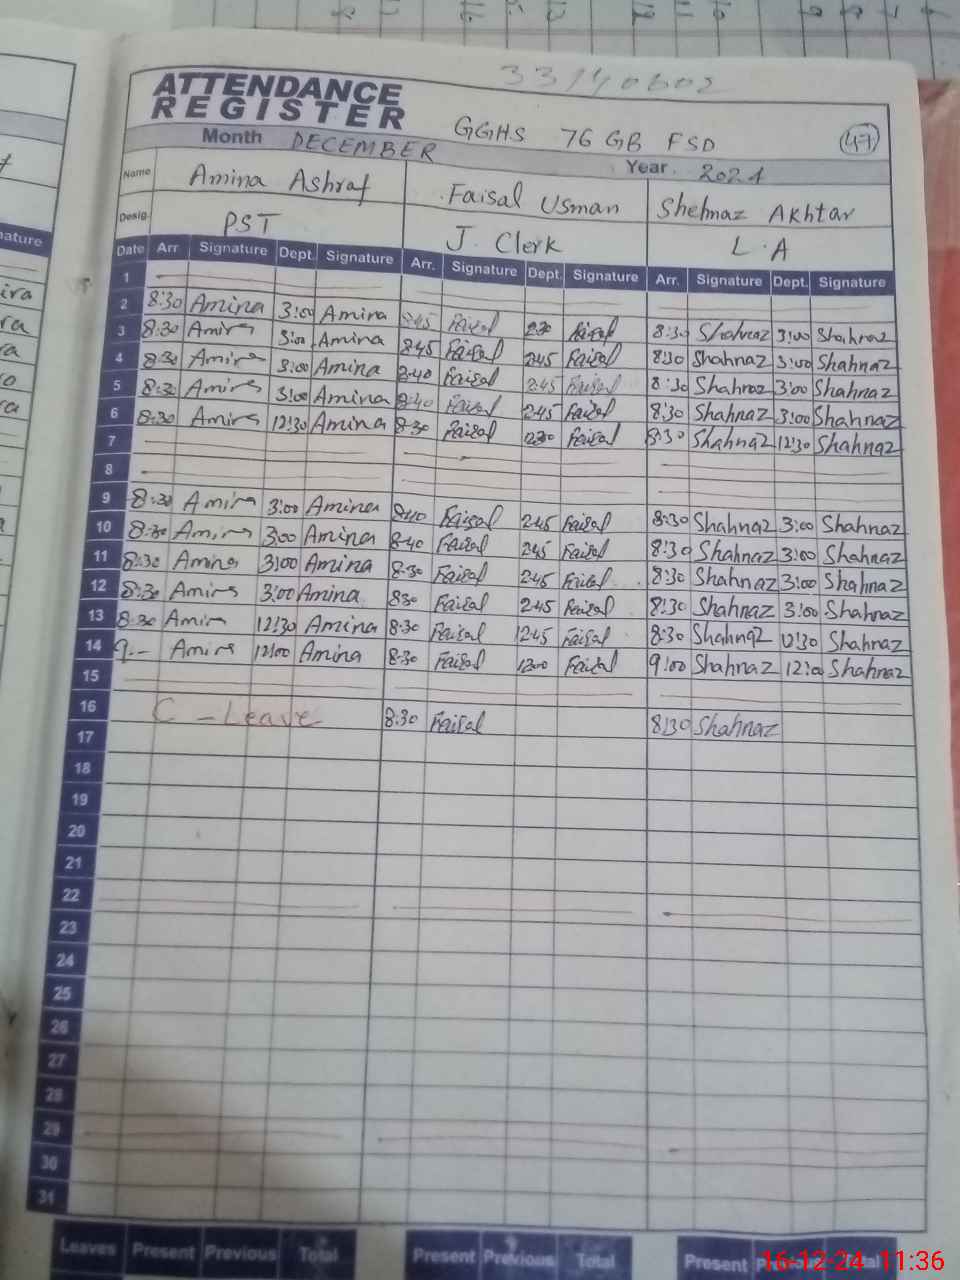 33140602
ATTENDANCE
REGISTER
GGHS 76 GB FSD
47
Month DECEMBER Year 2024
Name Amina Ashraf Faisal Usman Shehnaz Akhtar
Desig. PST J. Clerk L.A
Date Arr Signature Dept. Signature Arr. Signature Dept. Signature Arr. Signature Dept. Signature
1
2 8:30 Amina 3:00 Amina 8:45 Faisal 2:30 Faisal 8:30 Shahnaz 3:00 Shahnaz
3 8:30 Amina 3:00 Amina 8:45 Faisal 2:45 Faisal 8:30 Shahnaz 3:00 Shahnaz
4 8:30 Amina 3:00 Amina 8:40 Faisal 2:45 Faisal 8:30 Shahnaz 3:00 Shahnaz
5 8:30 Amina 3:00 Amina 8:40 Faisal 2:45 Faisal 8:30 Shahnaz 3:00 Shahnaz
6 8:30 Amina 12:30 Amina 8:30 Faisal 12:30 Faisal 8:30 Shahnaz 12:30 Shahnaz
7
8
9 8:30 Amina 3:00 Amina 8:40 Faisal 2:45 Faisal 8:30 Shahnaz 3:00 Shahnaz
10 8:30 Amina 3:00 Amina 8:40 Faisal 2:45 Faisal 8:30 Shahnaz 3:00 Shahnaz
11 8:30 Amina 3:00 Amina 8:30 Faisal 2:45 Faisal 8:30 Shahnaz 3:00 Shahnaz
12 8:30 Amina 3:00 Amina 8:30 Faisal 2:45 Faisal 8:30 Shahnaz 3:00 Shahnaz
13 8:30 Amina 12:30 Amina 8:30 Faisal 12:45 Faisal 8:30 Shahnaz 12:30 Shahnaz
14 9:- Amina 12:00 Amina 8:30 Faisal 12:00 Faisal 9:00 Shahnaz 12:00 Shahnaz
15
16 C - Leave 8:30 Faisal 8:30 Shahnaz
17
18
19
20
21
22
23
24
25
26
27
28
29
30
31
Leaves Present Previous Total Present Previous Total Present Total
16-12-24 11:36